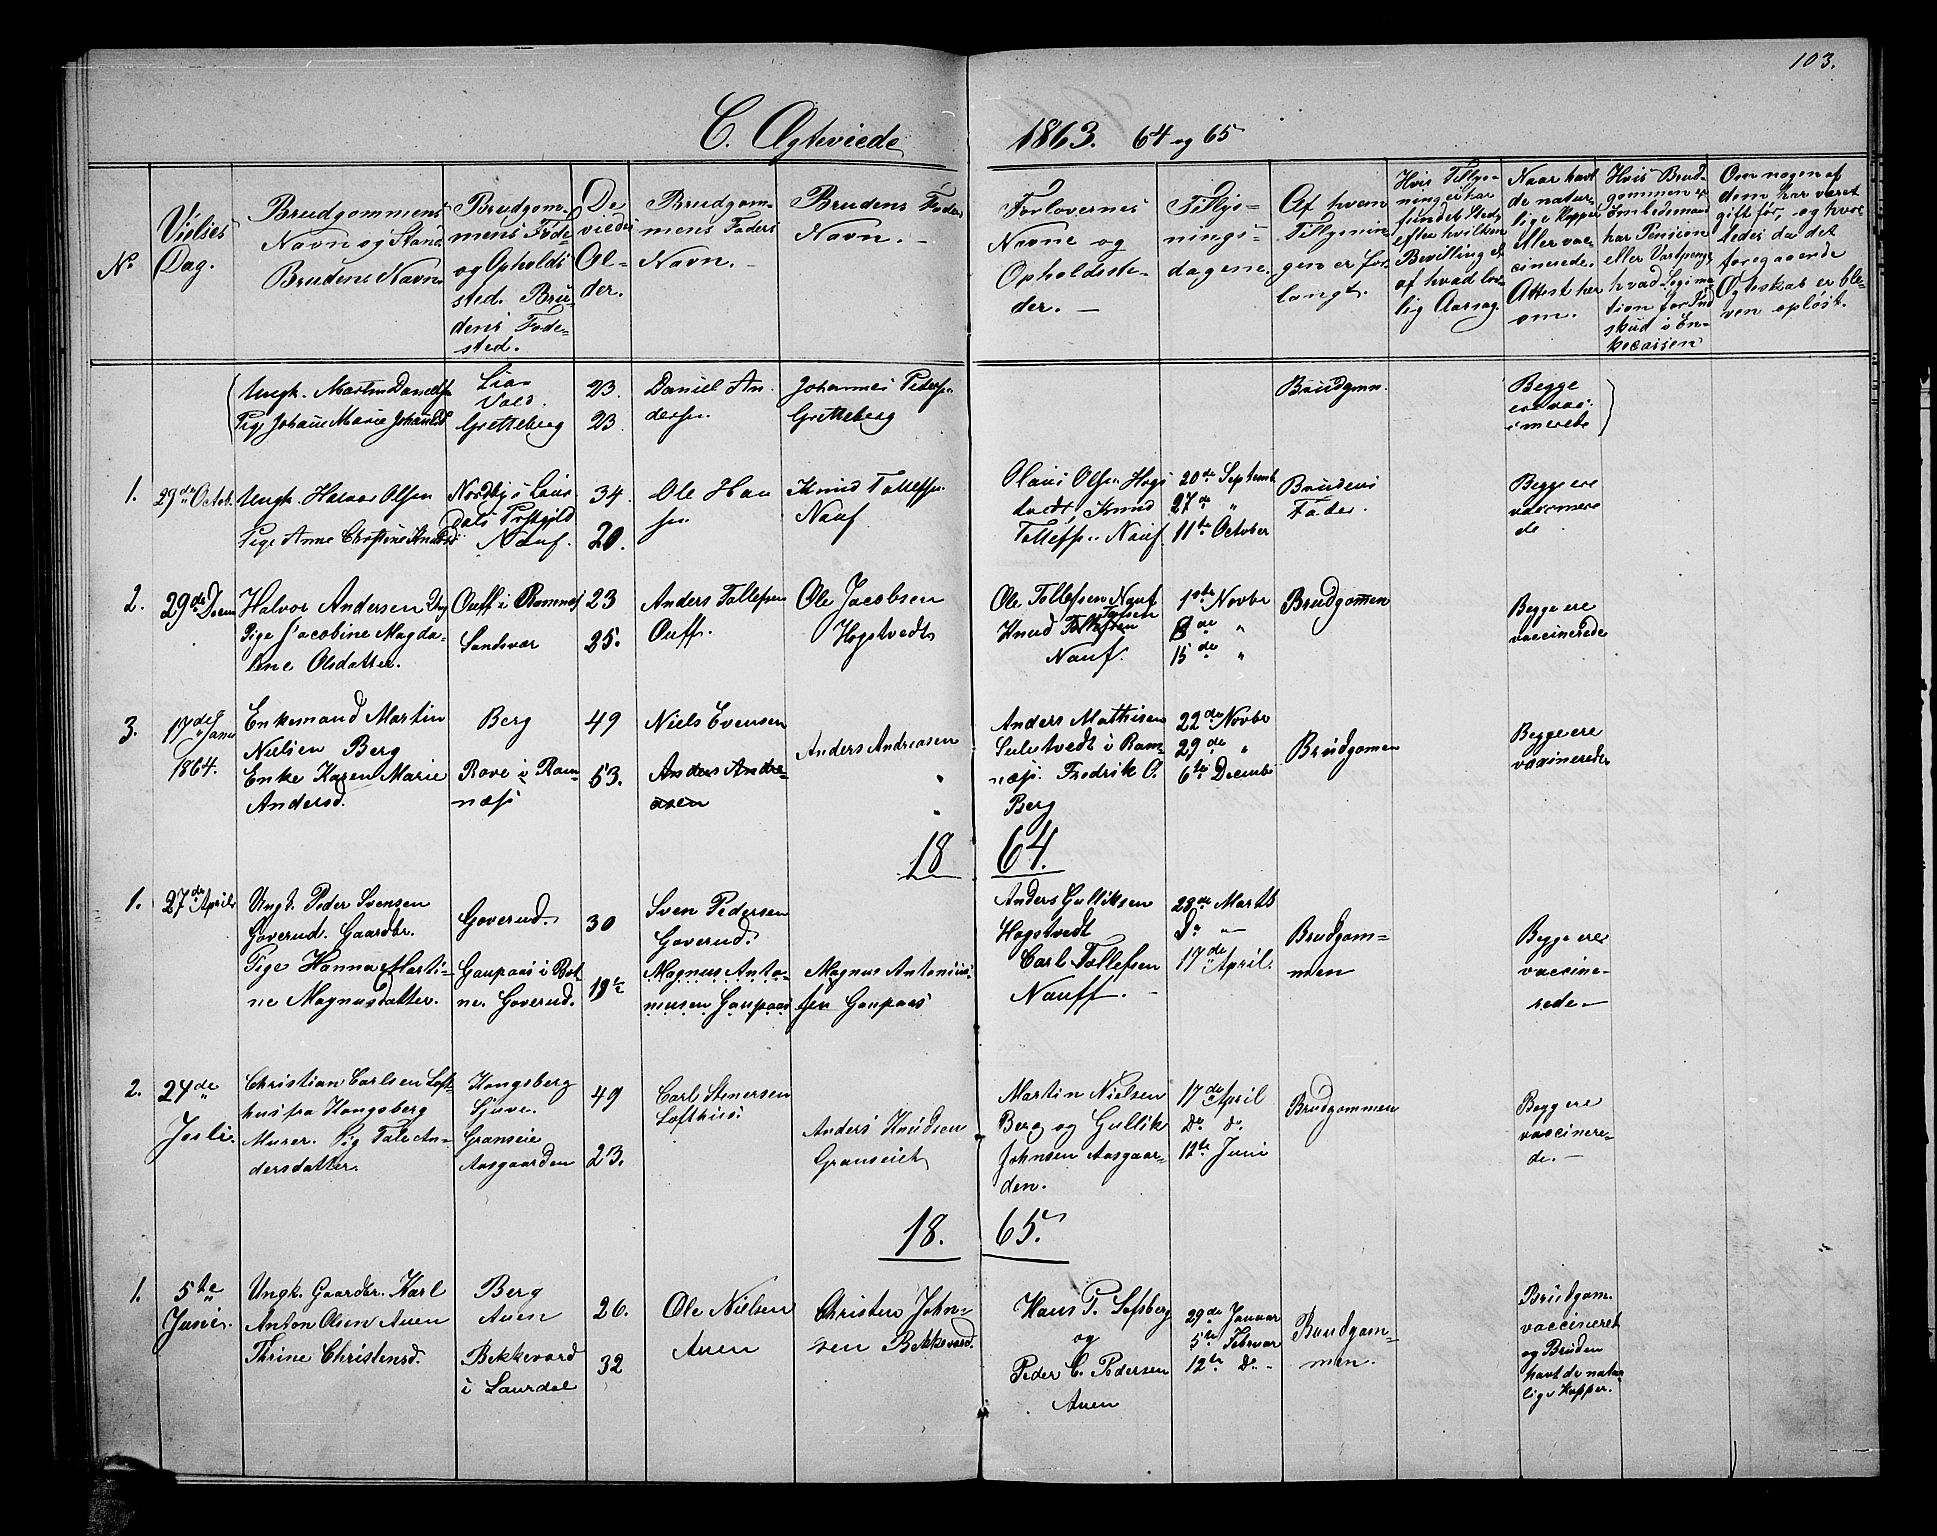 103.
C. Ægteviede 1863. 64 og 65
No
Vielses
Dag.
Brudgommens
Navn og Stand
Brudens Navn
Brudgom-
mens Føde-
og Opholds
sted. Bru-
dens Føde-
sted.
De
viedes
Al-
der.
Brudgom-
mens Faders
Navn. -
Brudens Faders
Navn. -
Forlovernes
Navne og
Opholdsste-
der. -
Tillys-
nings-
dagene.
Af hvem
Tillysnin-
gen er for-
langt.
Hvis Tillys-
ning ei har
fundet Sted,
efter hvilken
Bevilling el.
af hvad lov-
lig Aarsag.
Naar havt
de natur-
lige Kopper
eller vac-
cinerede.
Attest her
om.
Hvis Brud-
gommen er
Embedsmand
har Pension
eller Vartpenge
hvad Legima-
tion for Ind
skud i En-
kecassen
Om nogen af
dem har været
gift før, og hvor
ledes da det
foregaaende
Ægteskab er ble-
ven opløst.
Ungk. Martin Danielsn
Pige Johane Marie Johansd
Lia
Vald.
Gretteberg
23.
23.
Daniel An
dersn.
Johannes Pedersn.
Gretteberg
Brudgomn.
Begge
ere vac-
cinerede
1.
29de Octob.
Ungk. Halvor Olsen
Pige Anne Christine Knudsd
Nordby i Laur
dals Prstgjld
Nauf.
34.
20.
Ole Han
sn
Knud Tollefsn.
Nauf.
Olaus Olsn. Hogs
tvedt, Knud
Tollefsn. Nauf.
20de Septemb
27de "
11te October
Brudens
Fader.
Begge ere
vaccinere
de
2.
29de Decem
Halvor Andersen Ung
Pige Jacobine Magda-
lene Olsdatter.
Ouff i Ramnæs
Sandsvær
23
25.
Anders Tollefsen
Ouff.
Ole Jacobsen
Hogstvedt
Ole Tollefsen Nauf
Knud Tollefsen
Nauf.
1ste Novbr
8de "
15de "
Brudgomen
Begge ere
vaccinerede
3.
17de Janu
1864.
Enkemand Martin
Nielsen Berg
Enke Karen Marie
Andersd.
Berg
Rove i Ram-
næss
49
53.
Niels Evensen
Anders Andre-
asen
Anders Andreasen
"
"
Anders Mathisen
Sulutvedt i Ram-
næss. Fredrik O.
Berg
22de Novbr
29de "
6te Decemb
Brudgomen
Begge ere
vaxinerede
18 64.
1.
27de April
Ungk. Peder Svensen
Goverud. Gaardbr.
Pige Hanna Marti-
ne Magnusdatter.
Goverud.
Gaupaas i Bot
ne. Goverud.
30
19
Sven Pedersen
Goverud.
Magnus Anto-
niusen Gaupaas
Magnus Antonius-
sen Gaupaas
Anders Gulliksen
Hogstvedt
Carl Tollefsen
Nauff. -
28de Marts
Do "
17de April.
Brudgom-
men
Begge ere
vaccine-
rede -
2.
24de
Juli.
Christian Carlsen Loft-
hus fra Kongsberg
Murer. Pig. Tale An-
dersdatter.
Kongsberg
Sjuve.
Granseie
Aasgaarden
49
23.
Carl Stenersen
Lofthus.
Anders Knudsen
Granseiet
Martin Nielsen
Berg og Gullik
Johnsen Aasgaar-
den.
17de April
Do do
12te Juni
Brudgommen
Begg ere
vaccinere-
de. -
18. 65.
1.
5te
Juni.
Ungk. Gaardbr. Karl
Anton Olsen Auen
Thrine Christensd.
Berg
Auen
Bekkevard
i Laurdal
26.
32
Ole Nielsen
Auen
Christen John-
sen Bekkevard.
Hans P. Lofsberg
og
Peder C. Pedersen
Auen
29de Januar
5te Februar
12te Do -
Brudgom-
men.
Brudgom.
vaccineret
og Bruden
havt de natur
lige Kopper.